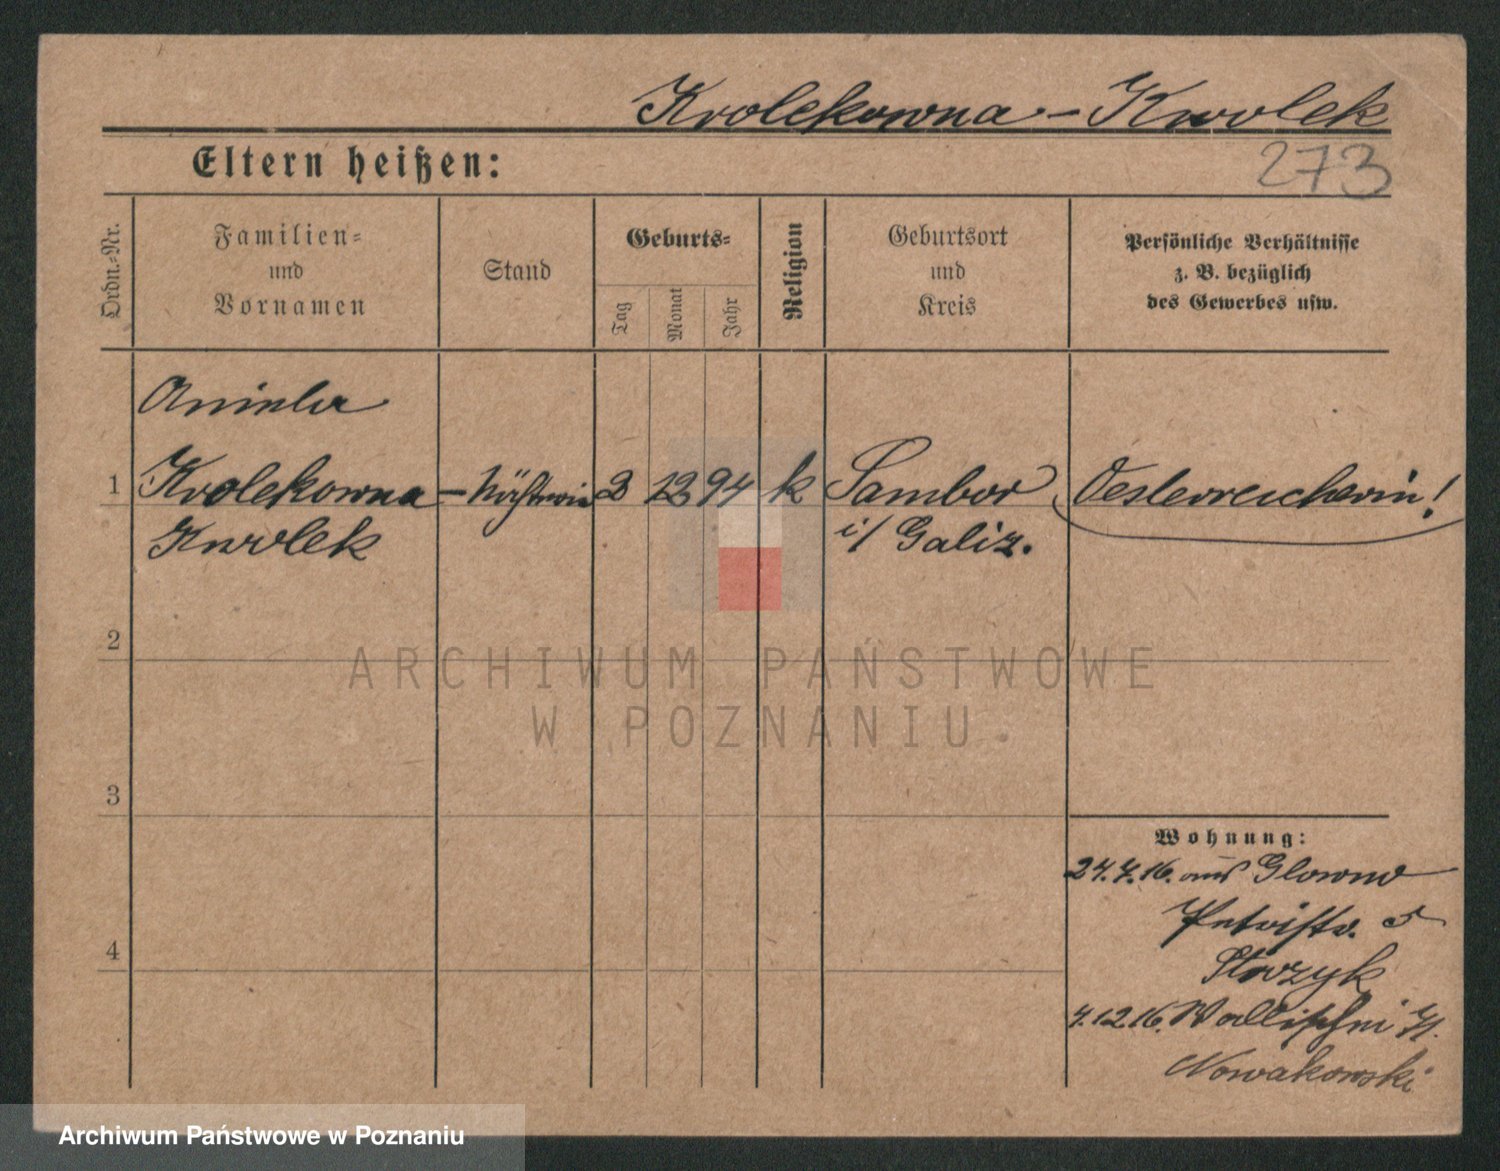 Krolekowna - Krolek
Eltern heißen:
273
Ordn.-Nr.
Familien-
und
Vornamen
Stand
Geburts-
Tag
Monat
Jahr
Religion
Geburtsort
und
Kreis
Persönliche Verhältnisse
z. B. bezüglich
des Gewerbes usw.
Aniela
1 Krolekowna - Näherin 2 12 94 k Sambor Oesterreicherin!
Krolek i/ Galiz.
2
3
4
Wohnung:
24.7.16. aus Glowno
Petristr. 5
Storzyk
4.12.16. Wallischei
Nowakowski
ARCHIWUM PAŃSTWOWE
W POZNANIU
Archiwum Państwowe w Poznaniu